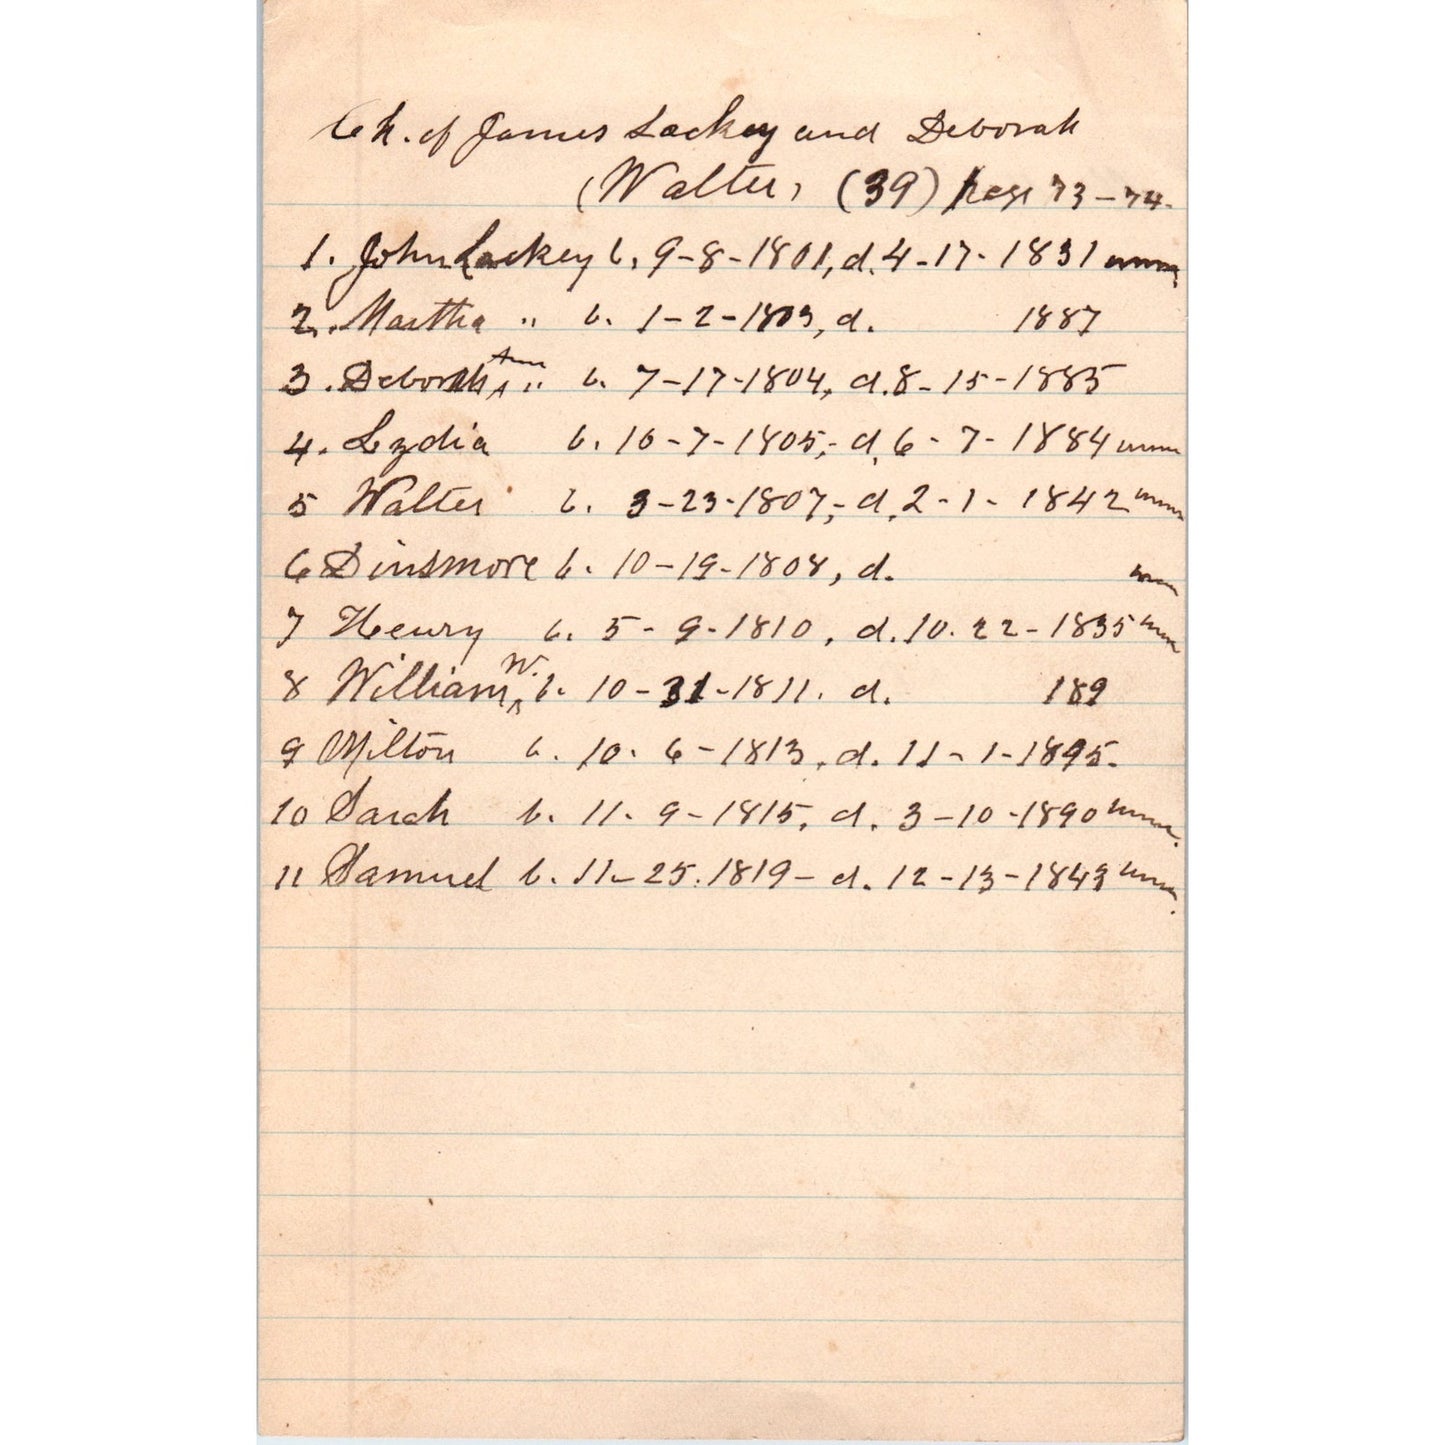 Ch. of James Lackey and Deborah
(Walter) (39) page 73-74.
1. John Lackey b. 9-8-1801, d. 4-17-1831 unm.
2. Martha " b. 1-2-1803, d. 1887
3. Deborah Ann " b. 7-17-1804, d. 8-15-1885
4. Lydia b. 10-7-1805,- d. 6-7-1884 unm
5 Walter b. 3-23-1807,- d. 2-1-1842 unm
6 Dinsmore b. 10-19-1808, d. unm
7 Henry b. 5-9-1810, d. 10.22-1835 unm
8 William W. b. 10-31-1811. d. 189
9 Milton b. 10. 6-1813, d. 11-1-1895.
10 Sarah b. 11. 9-1815, d. 3-10-1890 unm.
11 Samuel b. 11-25.1819- d. 12-13-1843 unm.